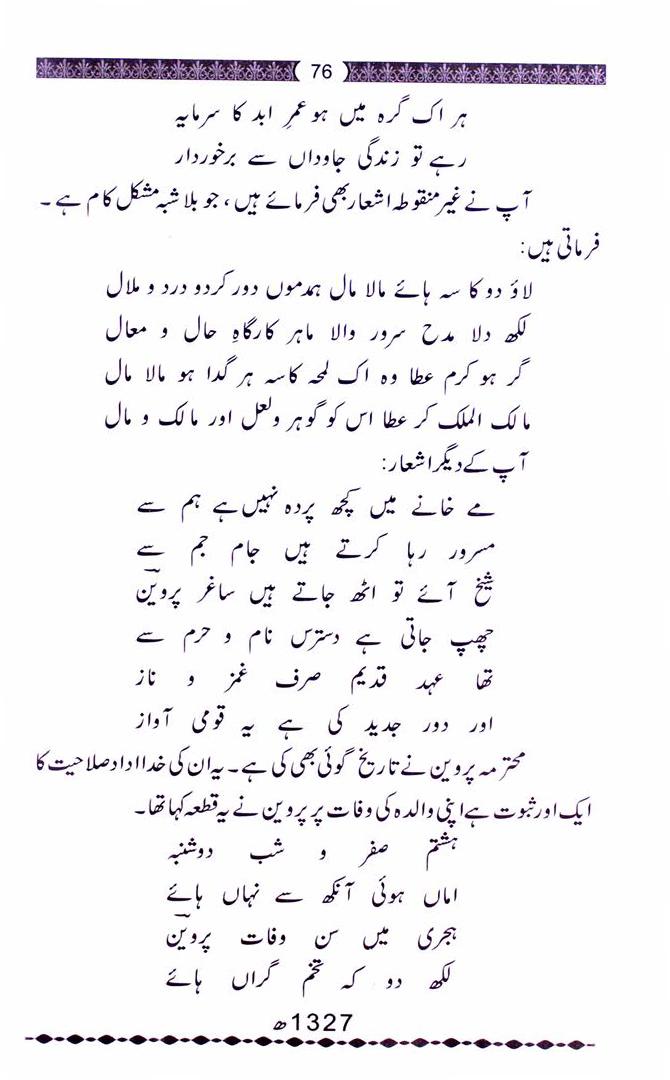 76
ہر اک گرہ میں ہو عمرِ ابد کا سرمایہ
رہے تو زندگی جاوداں سے برخوردار
آپ نے غیر منقوطہ اشعار بھی فرمائے ہیں، جو بلا شبہ مشکل کام ہے۔
فرماتی ہیں:
لاؤ دو کاسہ ہائے مالا مال ہمدموں دور کردو درد و ملال
لکھ دلا مدح سرور والا ماہر کارگاہِ حال و معال
گر ہو کرم عطا وہ اک لمحہ کاسہ ہر گدا ہو مالا مال
مالک الملک کر عطا اس کو گوہر ولعل اور مالک و مال
آپ کے دیگر اشعار:
مے خانے میں کچھ پردہ نہیں ہے ہم سے
مسرور رہا کرتے ہیں جام جم سے
شیخ آئے تو اٹھ جاتے ہیں ساغر پروینؔ
چھپ جاتی ہے دسترس نام و حرم سے
تھا عہد قدیم صرف غمز و ناز
اور دور جدید کی ہے یہ قومی آواز
محترمہ پروین نے تاریخ گوئی بھی کی ہے۔ یہ ان کی خداداد صلاحیت کا
ایک اور ثبوت ہے اپنی والدہ کی وفات پر پروین نے یہ قطعہ کہا تھا۔
ہشتم صفر و شب دوشنبہ
اماں ہوئی آنکھ سے نہاں ہائے
ہجری میں سن وفات پروینؔ
لکھ دو کہ تخم گراں ہائے
1327ھ